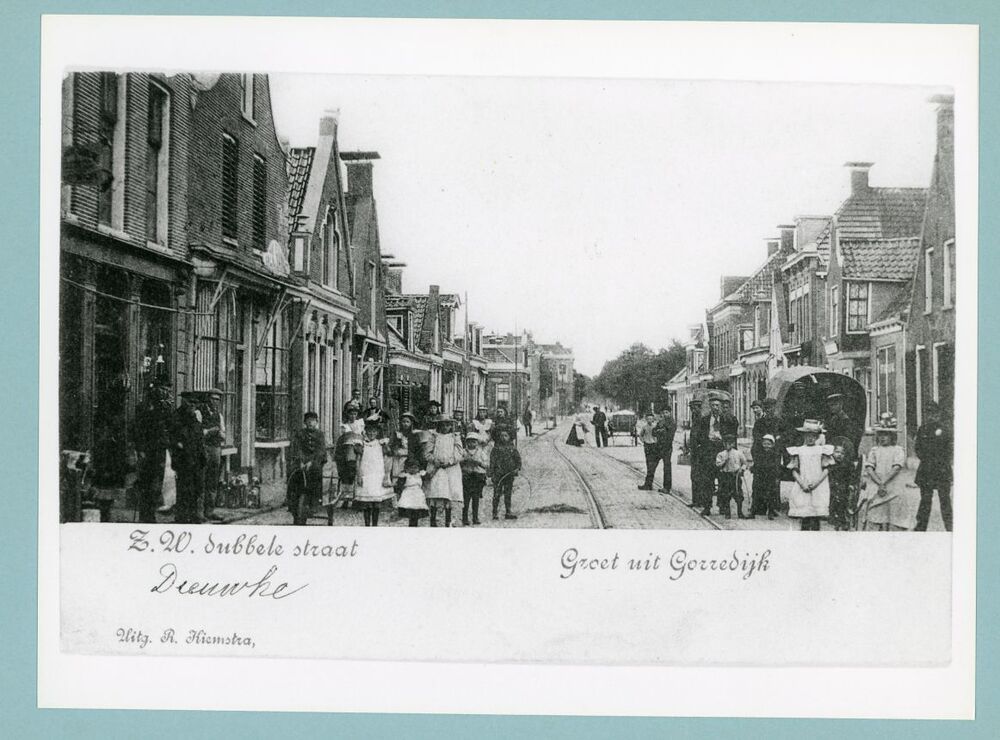 Z.W. dubbele straat
Groet uit Gorredijk
Dieuwke
Uitg. R. Hiemstra,